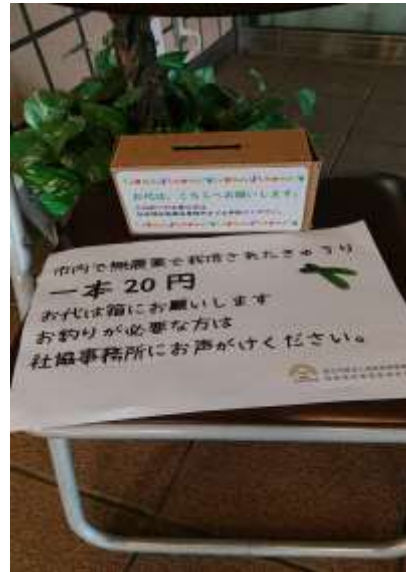 お代は、こちらへお願いします。
市内で無農薬で栽培されたきゅうり
一本 20 円
お代は箱にお願いします
お釣りが必要な方は
社協事務所にお声がけください。